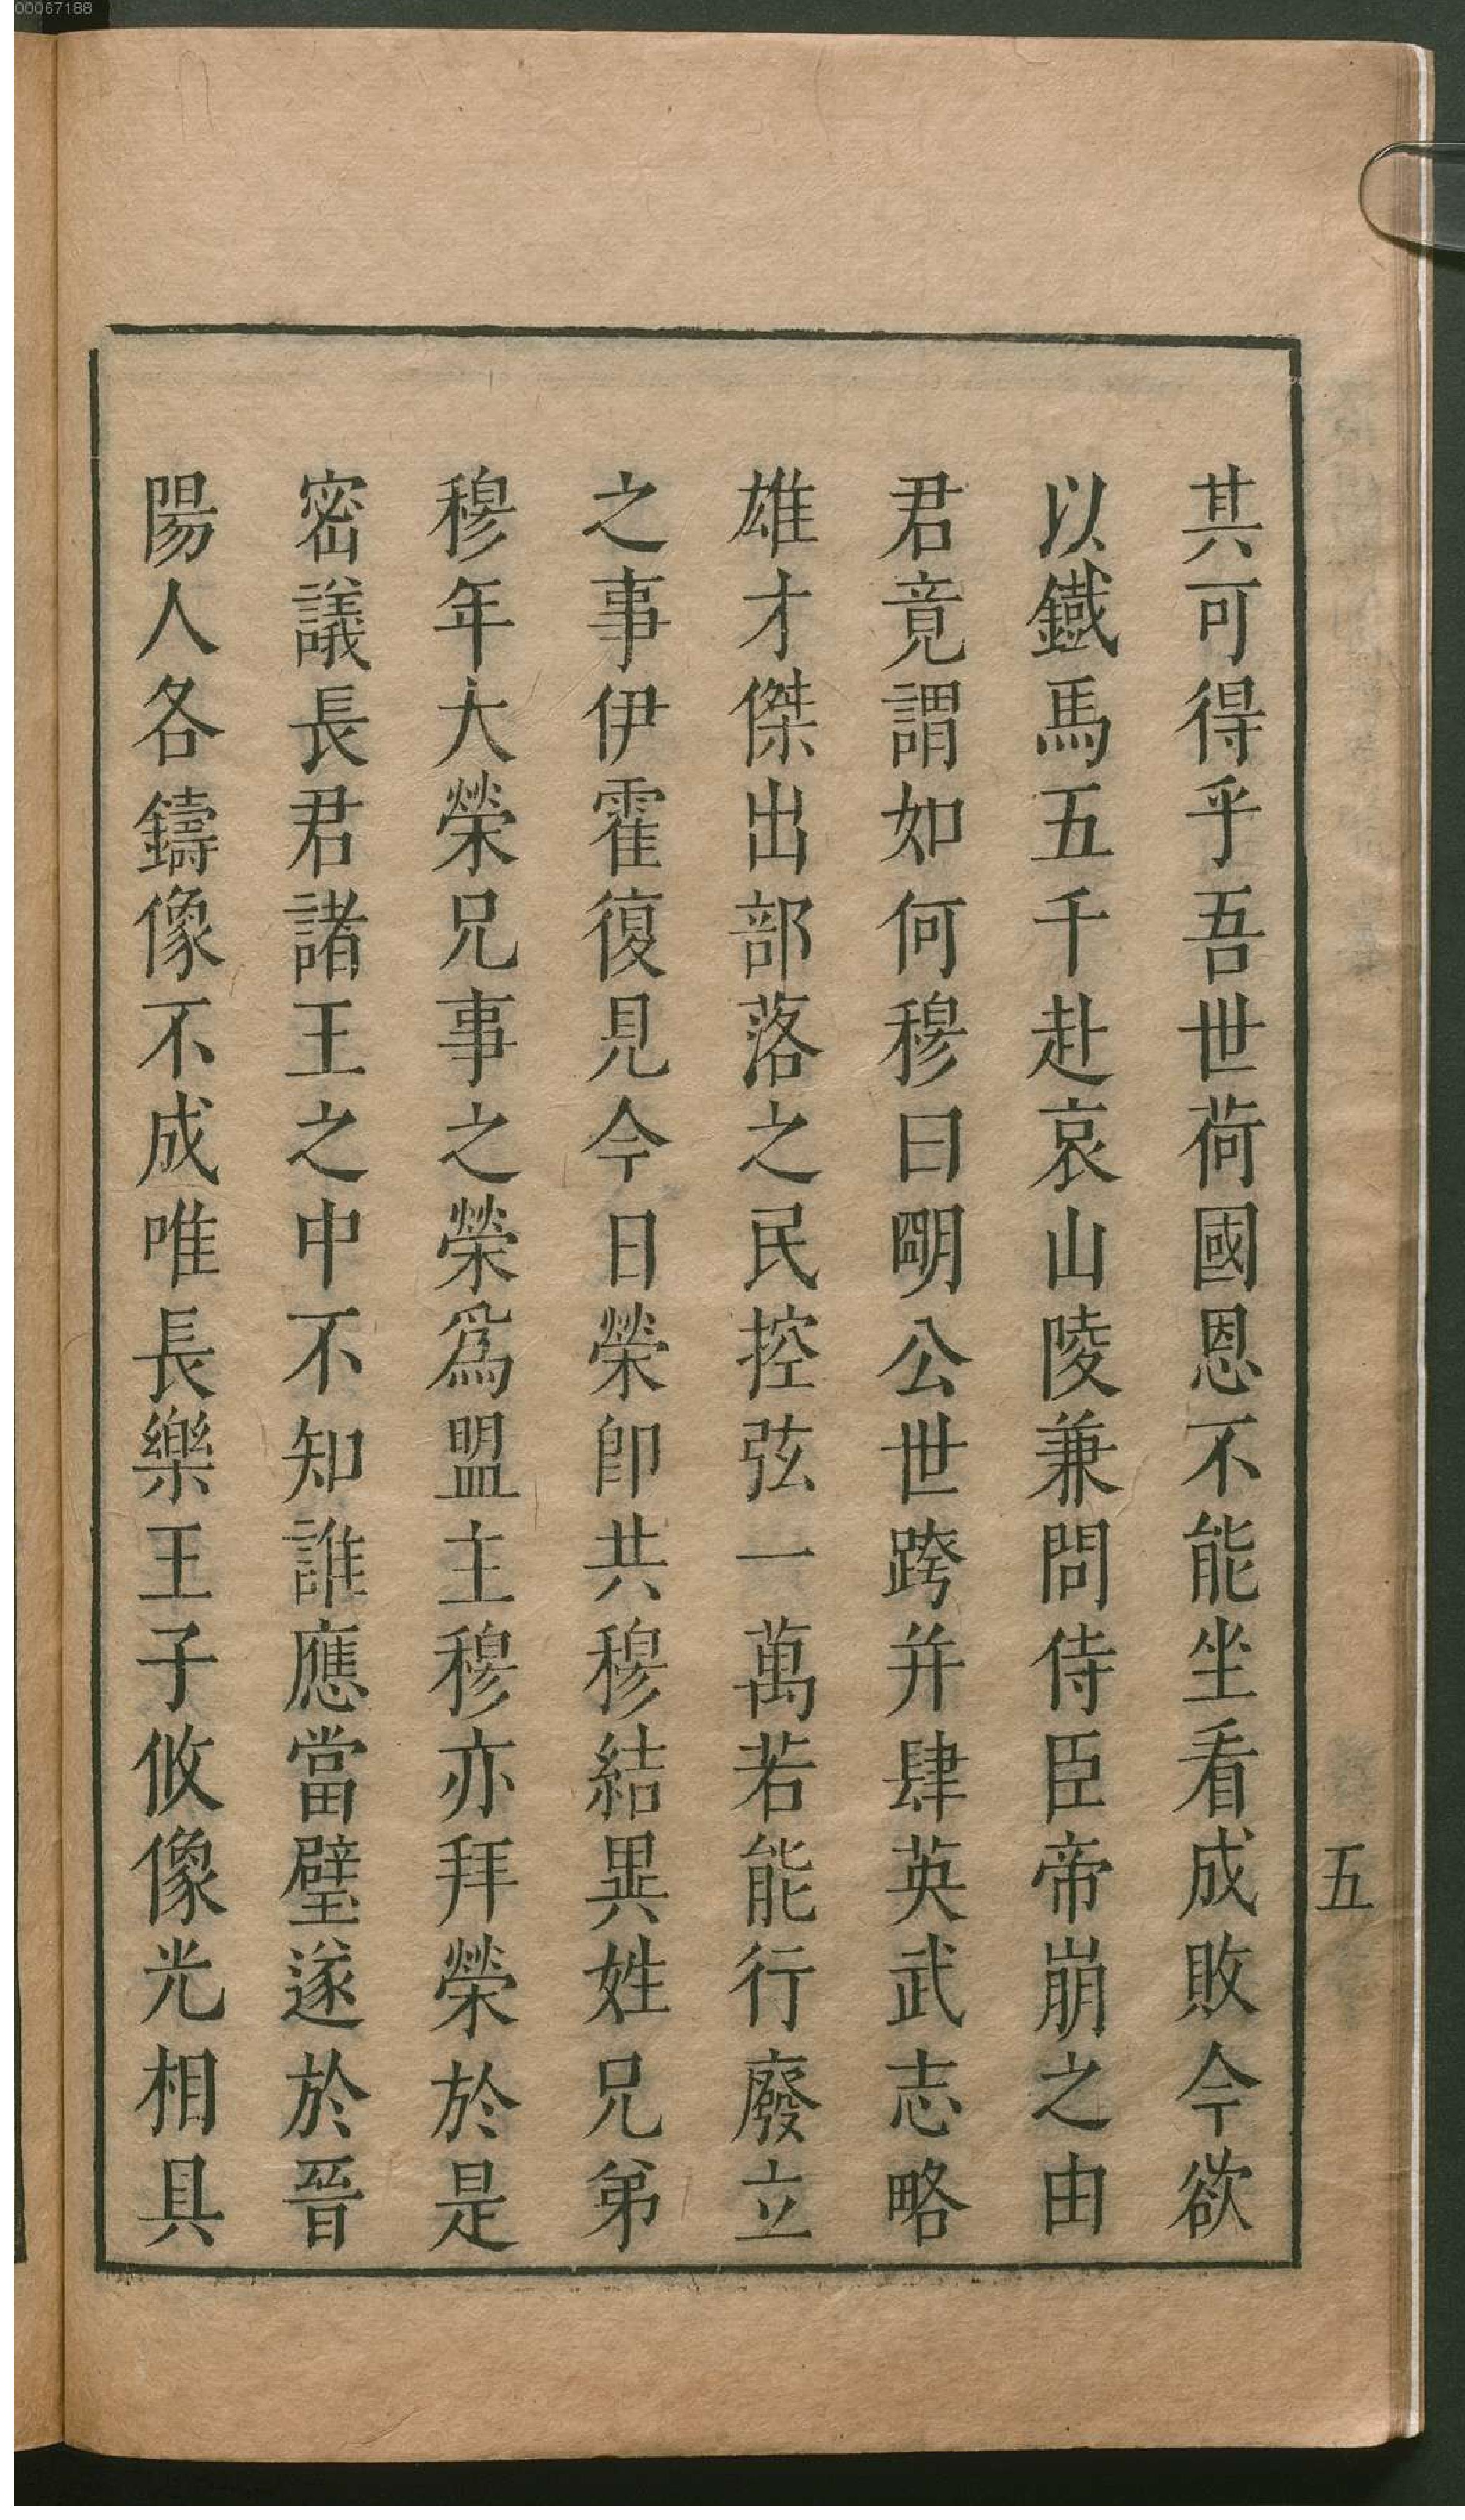 00067188
其可得乎吾世荷國恩不能坐看成敗今欲
以鐵馬五千赴哀山陵兼問侍臣帝崩之由
君竟謂如何穆曰明公世跨并肆英武志略
雄才傑出部落之民控弦一萬若能行廢立
之事伊霍復見今日榮即共穆結異姓兄弟
穆年大榮兄事之榮爲盟主穆亦拜榮於是
密議長君諸王之中不知誰應當璧遂於晉
陽人各鑄像不成唯長樂王子攸像光相具
五